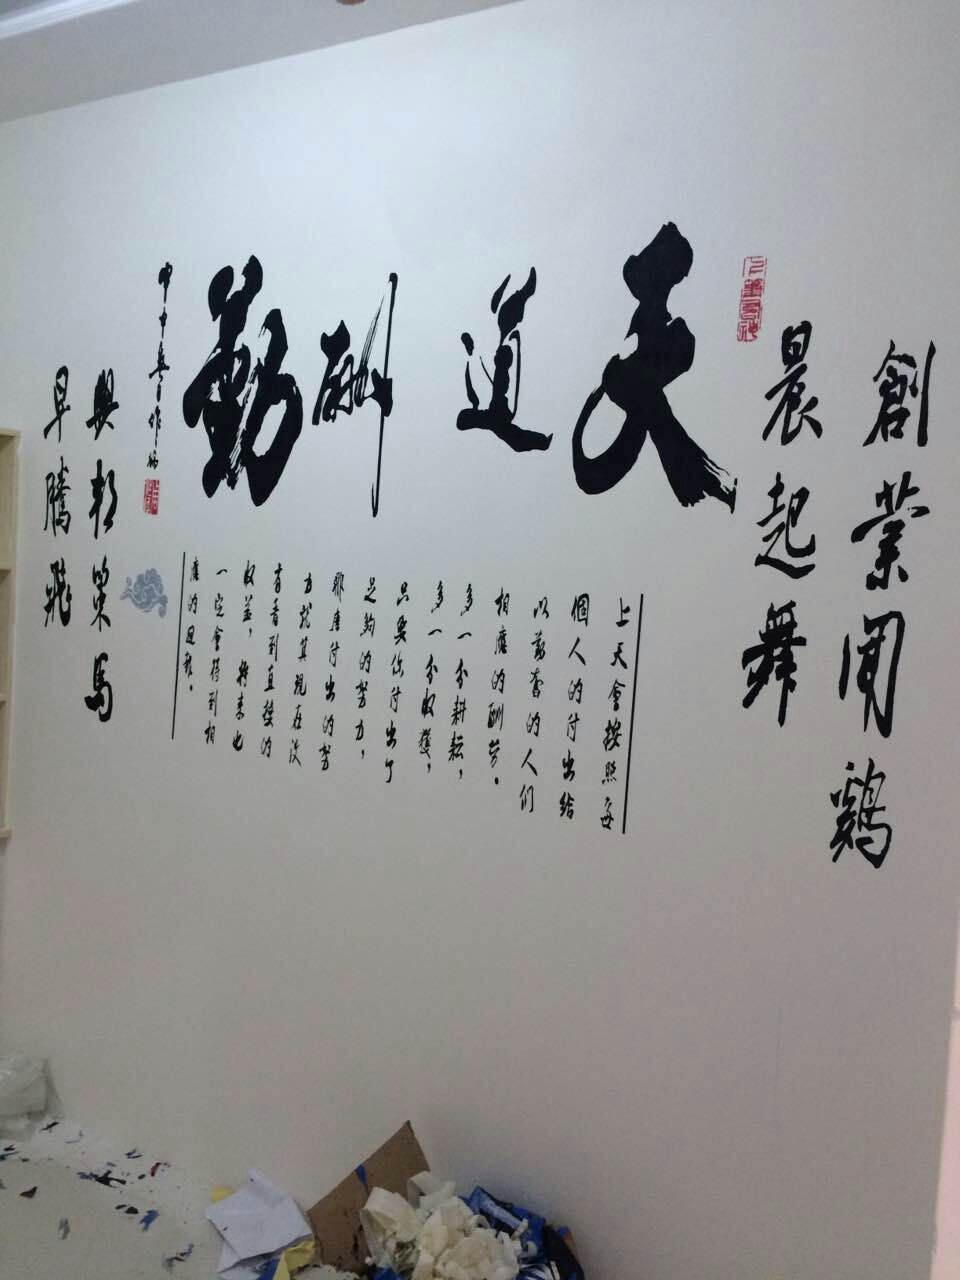 創業聞鷄
晨起舞
天道酬勤
上天會按照每
個人的付出給
以勤奮的人们
相應的酬劳。
多一分耕耘，
多一分收獲，
只要你付出了
足夠的努力，
那座付出的努
力就算現在没
有看到直接的
收益，将来也
一定會得到相
應的回報。
興邦策馬
早騰飛